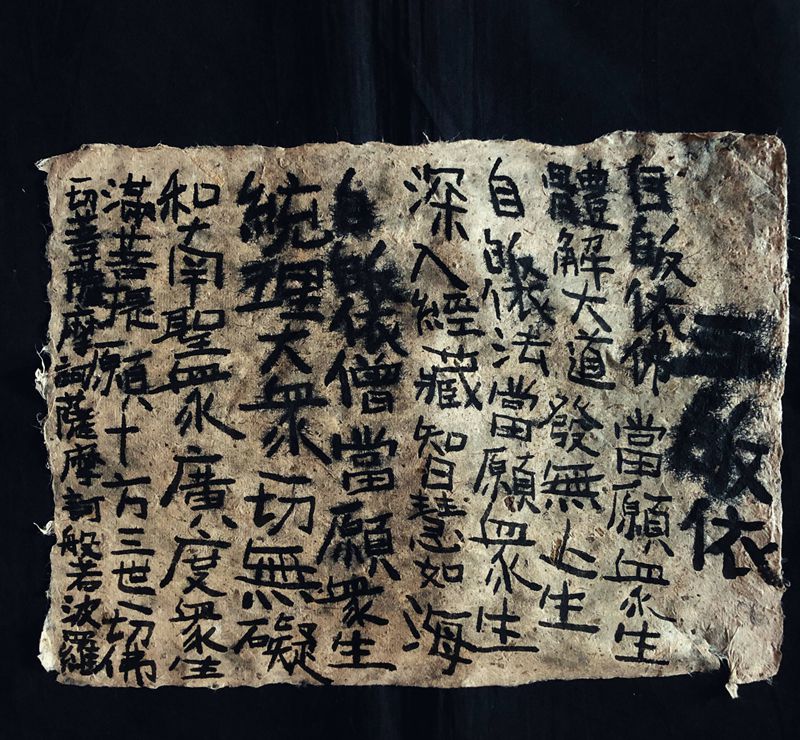 三皈依
自皈依佛當願衆生
體解大道發無上生
自皈依法當願衆生
深入經藏智慧如海
自皈依僧當願衆生
統理大衆一切無礙
和南聖衆廣度衆生
滿菩提願十方三世一切佛
一切菩薩摩訶薩摩訶般若波羅